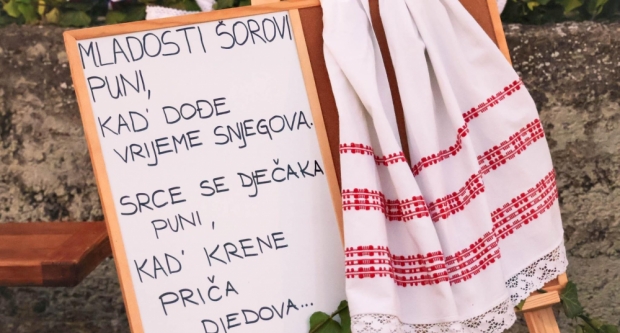 MLADOSTI ŠOROVI
PUNI,
KAD' DOĐE
VRIJEME SNJEGOVA.
SRCE SE DJEČAKA
PUNI,
KAD' KRENE
PRIČA
DJEDOVA...